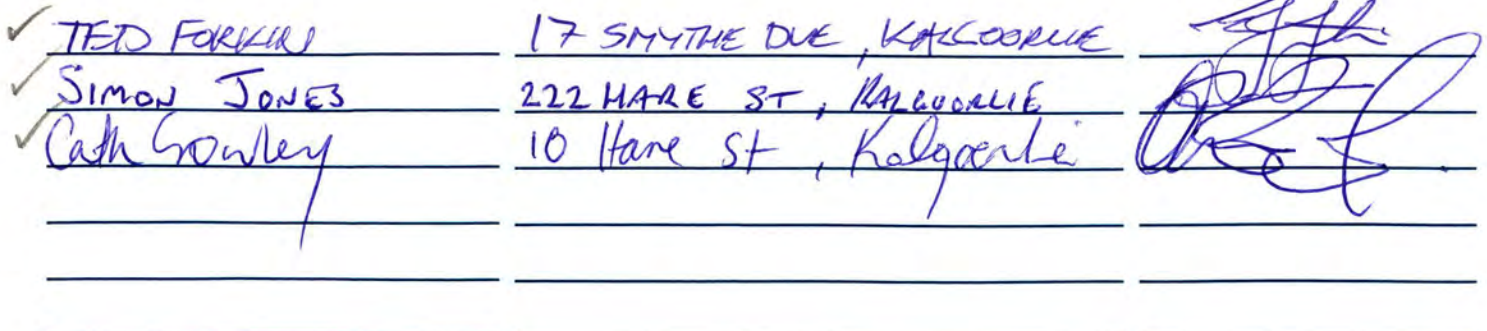 TED FORKIN 17 SMYTHE DVE, KALGOORLIE
SIMON JONES 222 HARE ST, KALGOORLIE
Cath 10 Hare St, Kalgoorlie